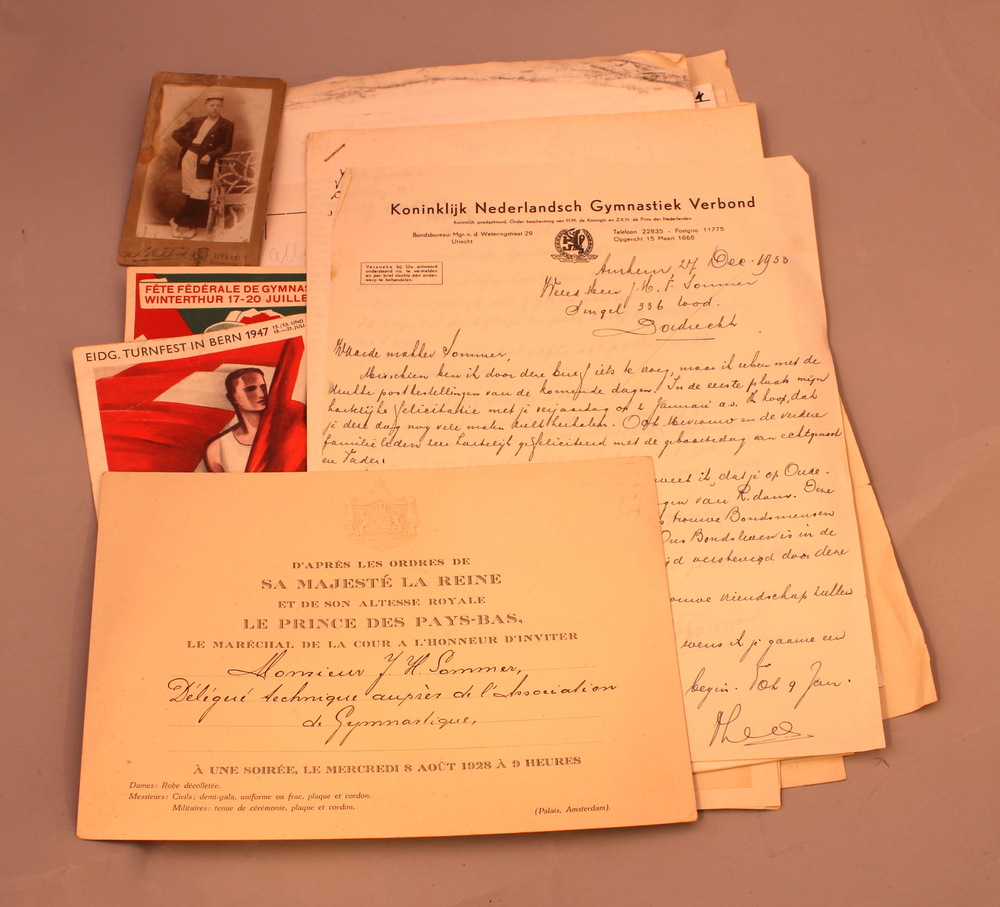 UTRECHT
FÊTE FÉDÉRALE DE GYMNAS
WINTERTHUR 17-20 JUILLE
EIDG. TURNFEST IN BERN 1947
Koninklijk Nederlandsch Gymnastiek Verbond
Koninklijk goedgekeurd. Onder bescherming van H.M. de Koningin en Z.K.H. de Prins der Nederlanden
Bondsbureau: Mgr. v. d Weteringstraat 29
Utrecht
Telefoon 22835 - Postgiro 11775
Opgericht 15 Maart 1868
Verzoeke bij Uw antwoord
onderstaand no. te vermelden
en per brief slechts één onder-
werp te behandelen.
Arnhem, 27 Dec. 1953
J. H. F. Sommer
Singel 336 rood.
Dordrecht
Waarde makker Sommer,
Misschien ben ik door deze brief iets te vroeg, maar ik reken met de
drukke postbestellingen van de komende dagen. In de eerste plaats mijn
hartelijke felicitatie met je verjaardag op 2 Januari a.s. Ik hoop, dat
je deze dag nog vele malen zult herhalen. Ook Mevrouw en de verdere
familieleden zeer hartelijk gefeliciteerd met de geboortedag van echtgenoot
en Vader.
weet ik, dat je op Oude-
van R.dam. Deze
trouwe Bondsmensen
Ons Bondsleven is in de
verstevigd door deze
vriendschap zullen
wens ik je gaarne een
begin. Tot 9 Jan.
D'APRÈS LES ORDRES DE
SA MAJESTÉ LA REINE
ET DE SON ALTESSE ROYALE
LE PRINCE DES PAYS-BAS,
LE MARÉCHAL DE LA COUR A L'HONNEUR D'INVITER
Monsieur J. H. Sommer,
Délégué technique auprès de l'Association
de Gymnastique,
À UNE SOIRÉE, LE MERCREDI 8 AOÛT 1928 À 9 HEURES
Dames: Robe décolletée.
Messieurs: Civils; demi-gala, uniforme ou frac, plaque et cordon.
Militaires: tenue de cérémonie, plaque et cordon.
(Palais, Amsterdam).